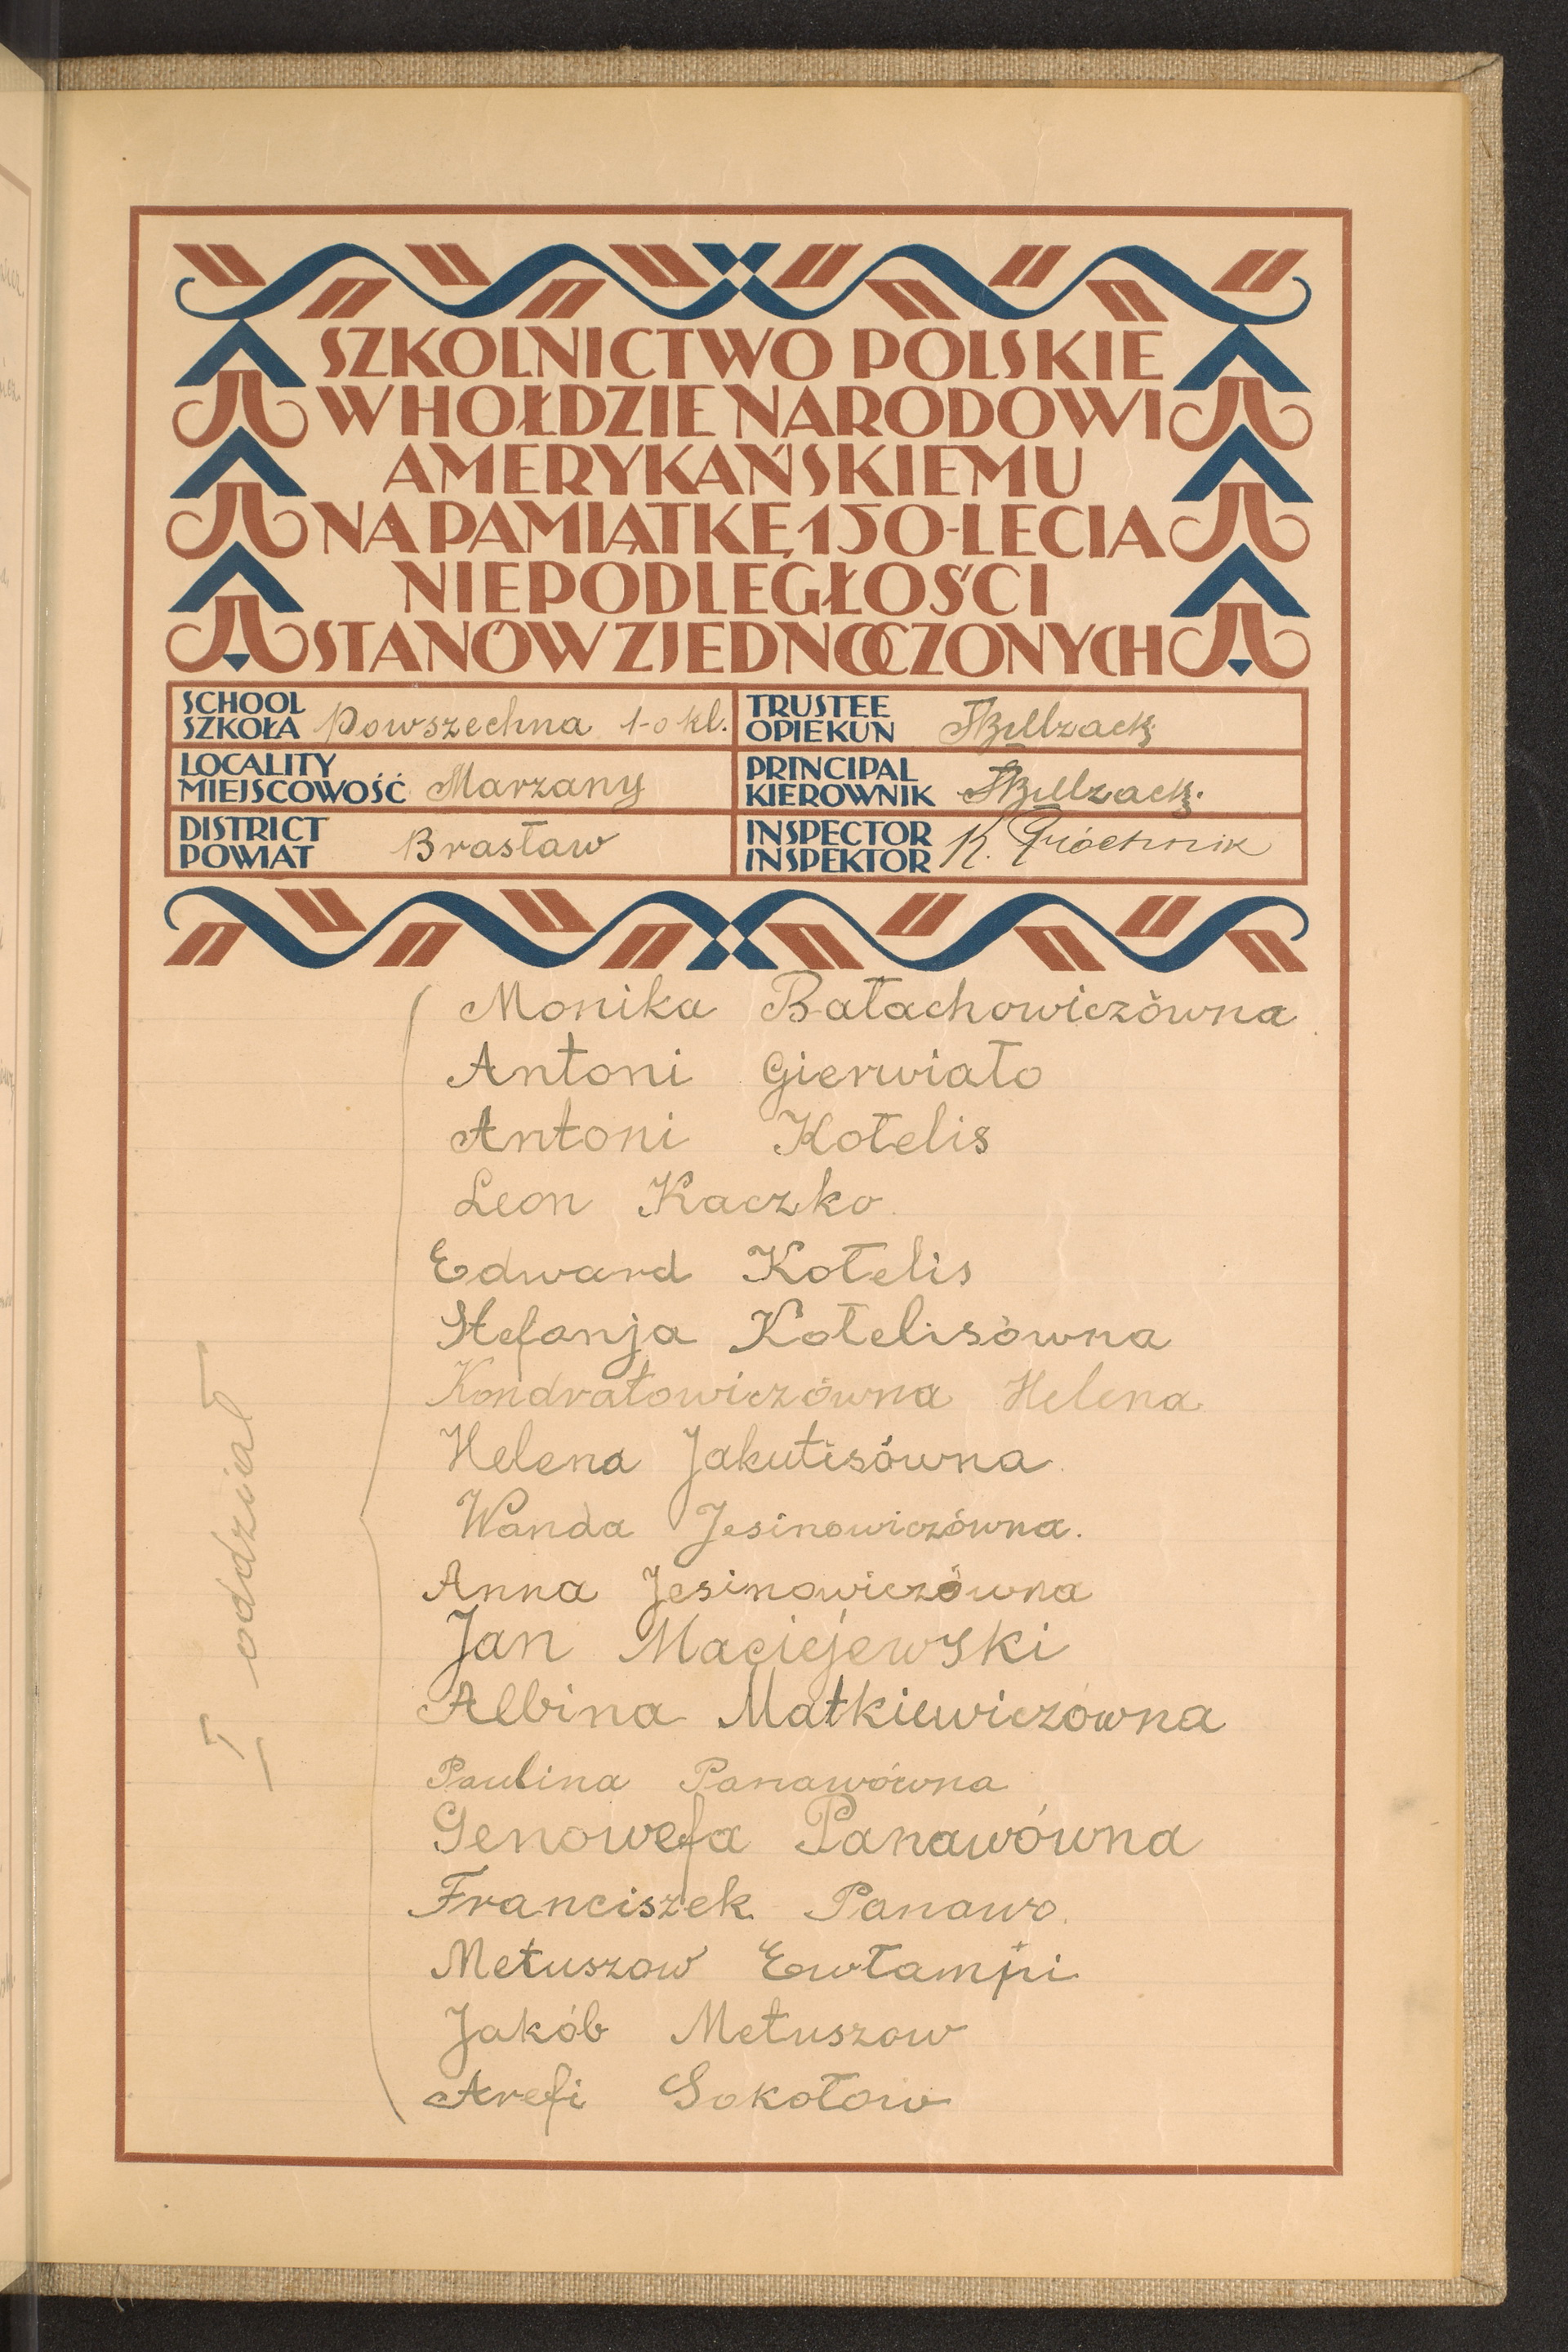 SZKOLNICTWO POLSKIE
W HOŁDZIE NARODOWI
AMERYKAŃSKIEMU
NA PAMIĄTKĘ 150-LECIA
NIEPODLEGŁOŚCI
STANÓW ZJEDNOCZONYCH
SCHOOL
SZKOŁA Powszechna 1-o kl.
TRUSTEE
OPIEKUN
LOCALITY
MIEJSCOWOŚĆ Marzany
PRINCIPAL
KIEROWNIK
DISTRICT
POWIAT Brasław
INSPECTOR
INSPEKTOR K.
I oddział
Monika Bałachowiczówna
Antoni Gierwiało
Antoni Kotelis
Leon Kaczko
Edward Kotelis
Stefanja Kotelisówna
Kondratowiczówna Helena
Helena Jakutisówna
Wanda Jesinowiczówna.
Anna Jesinowiczówna
Jan Maciejewski
Albina Matkiewiczówna
Paulina Panawówna
Genowefa Panawówna
Franciszek Panawo.
Metuszow Ewłampi
Jakób Metuszow
Arefi Sokołow